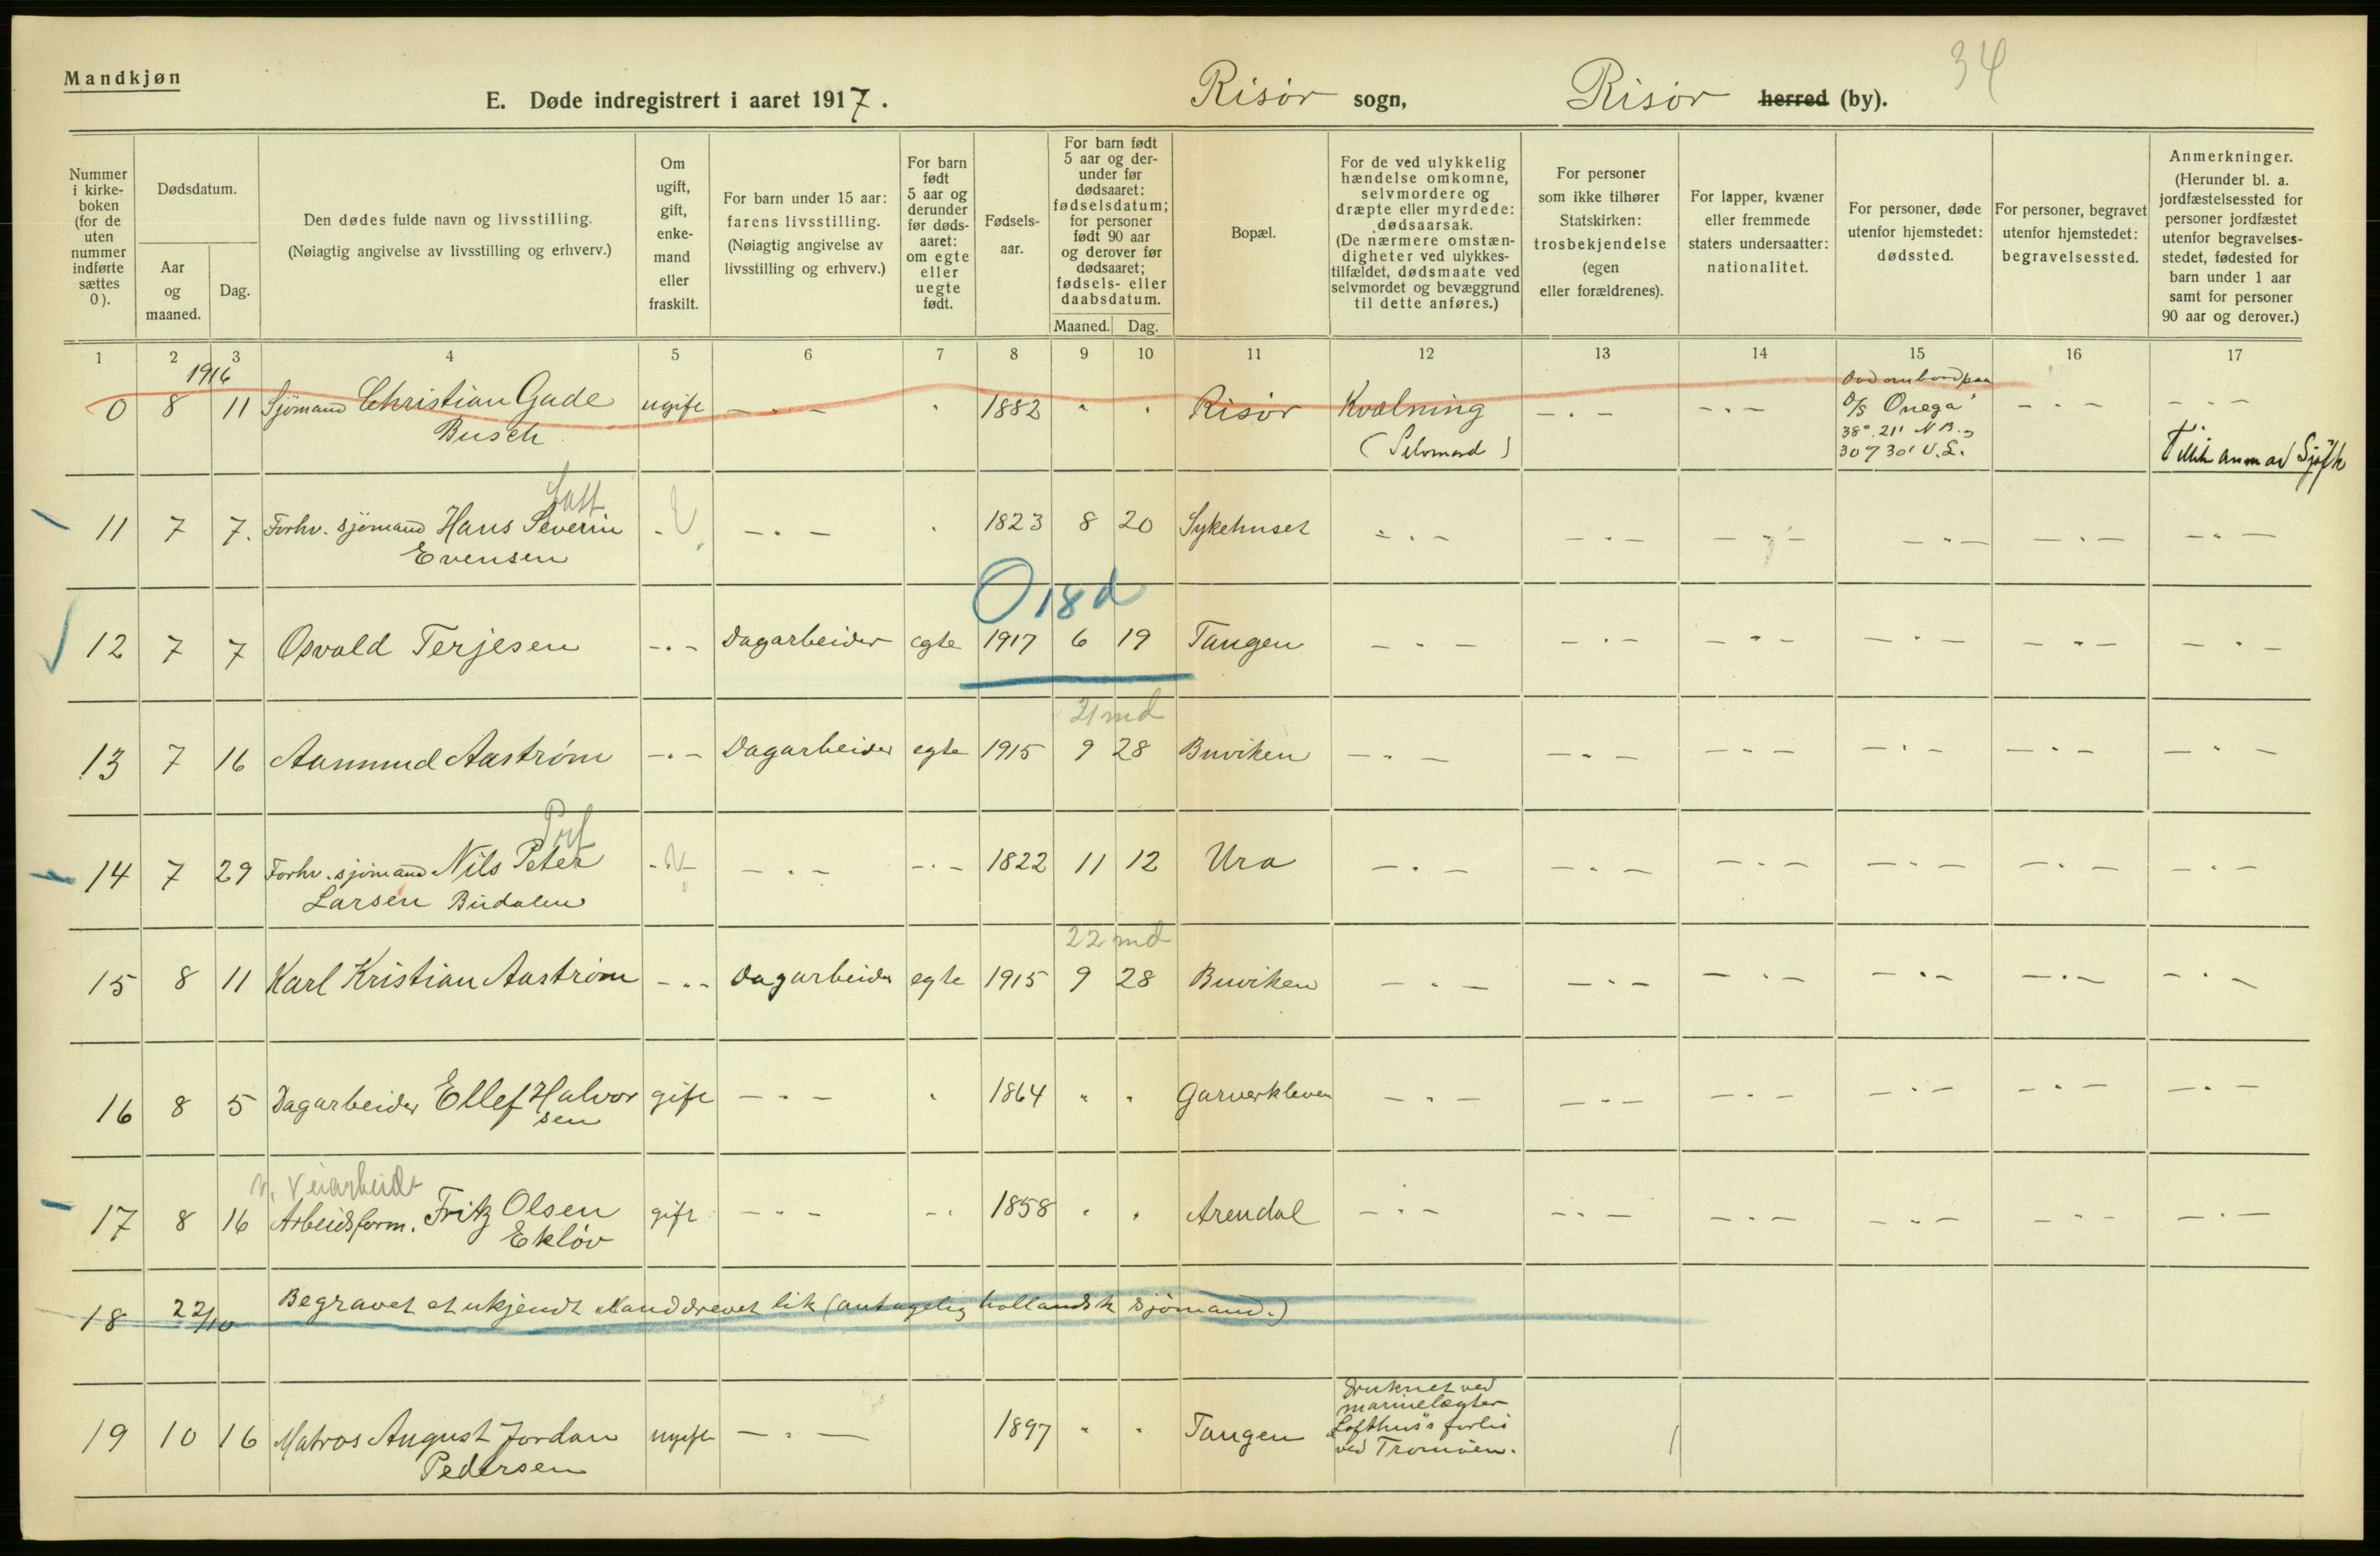 Mandkjøn
34
E. Døde indregistrert i aaret 1917.
Risør sogn,
Risør herred (by).
Nummer i kirke-boken (for de uten nummer indførte sættes 0).
Dødsdatum.
Aar og maaned.
Dag.
Den dødes fulde navn og livsstilling.
(Nøiagtig angivelse av livsstilling og erhverv.)
Om ugift, gift, enke-mand eller fraskilt.
For barn under 15 aar: farens livsstilling. (Nøiagtig angivelse av livsstilling og erhverv.)
For barn født 5 aar og derunder før døds-aaret: om egte eller uegte født.
Fødsels-aar.
For barn født 5 aar og der-under før dødsaaret: fødselsdatum; for personer født 90 aar og derover før dødsaaret; fødsels- eller daabsdatum.
Maaned. Dag.
Bopæl.
For de ved ulykkelig hændelse omkomne, selvmordere og dræpte eller myrdede: dødsaarsak. (De nærmere omstæn-digheter ved ulykkes-tilfældet, dødsmaate ved selvmordet og bevæggrund til dette anføres.)
For personer som ikke tilhører Statskirken: trosbekjendelse (egen eller forældrenes).
For lapper, kvæner eller fremmede staters undersaatter: nationalitet.
For personer, døde utenfor hjemstedet: dødssted.
For personer, begravet utenfor hjemstedet: begravelsessted.
Anmerkninger. (Herunder bl. a. jordfæstelsessted for personer jordfæstet utenfor begravelses-stedet, fødested for barn under 1 aar samt for personer 90 aar og derover.)
1 2 3 4 5 6 7 8 9 10 11 12 13 14 15 16 17
1916
0 8 11 Sjømand Christian Gade ugift - . - " 1882 " " Risør Kvælning - . - - . - Död ombord paa - . - - . -
Busch (Selvmord) D/S Onega
38° 21' N B. og
30° 30' V. L.
anm av Sjøfk
11 7 7. Forhv. sjømand Hans Severin - - . - " 1823 8 20 Sykehuset - . - - . - - . - - . - - . - - . -
Evensen
0 18 d
12 7 7 Osvald Terjesen - . - Dagarbeider egte 1917 6 19 Tangen - . - - . - - . - - . - - . - - . -
21 md
13 7 16 Aamund Aastrøm - . - Dagarbeider egte 1915 9 28 Buviken - . - - . - - . - - . - - . - - . -
14 7 29 Forhv. sjømand Nils Peter - - . - - . - 1822 11 12 Ura - . - - . - - . - - . - - . - - . -
Larsen
22 md
15 8 11 Karl Kristian Aastrøm - . - Dagarbeider egte 1915 9 28 Buviken - . - - . - - . - - . - - . - - . -
16 8 5 Dagarbeider Ellef Halvor gift - . - " 1864 " " Garverkleven - . - - . - - . - - . - - . - - . -
sen
v. veiarbeide
17 8 16 Arbeidsform. Fritz Olsen gift - . - - . 1858 " " Arendal - . - - . - - . - - . - - . - - . -
Ekløv
18 22/10 Begravet et ukjendt ilanddrevet lik (antagelig hollandsk sjømand.)
19 10 16 Matros August Jordan ugift - . - 1897 " " Tangen Druknet ved
Pedersen marinelægter
"Lofthus"s forlis
ved Tromøen.